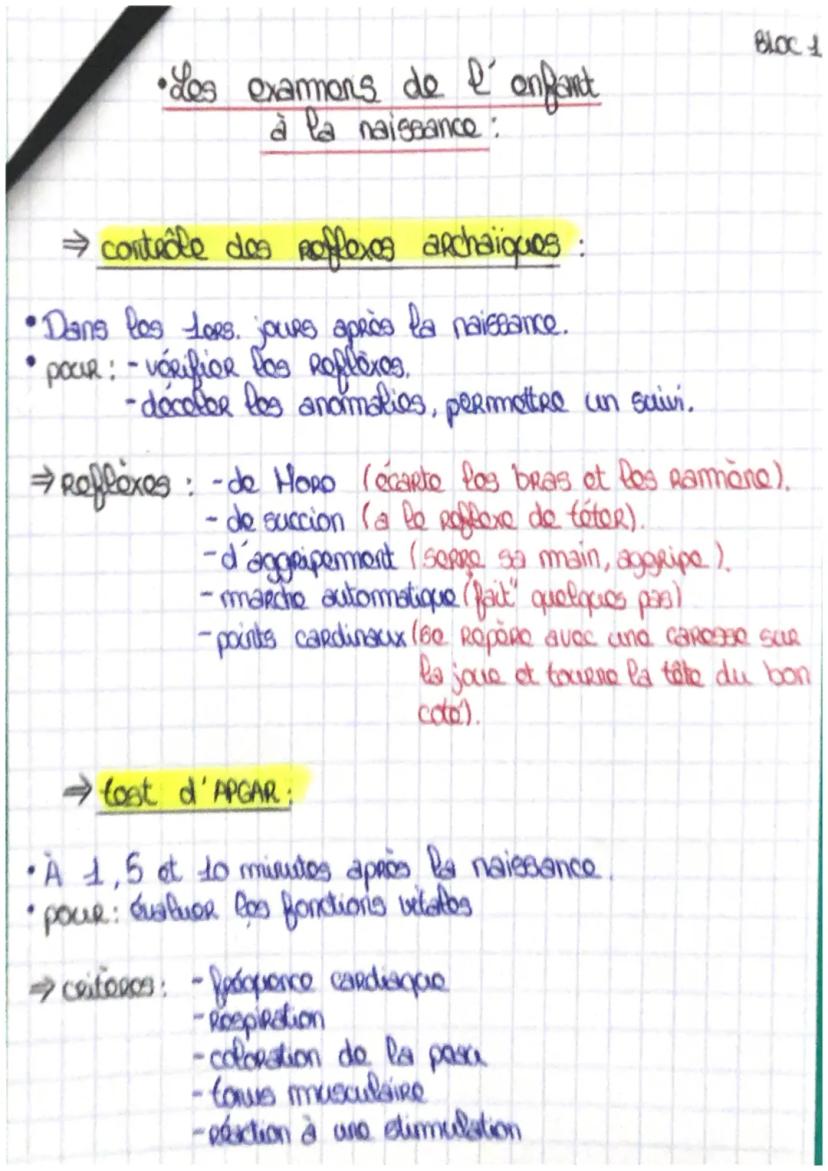 BLOC 1
• Les examens de l'enfant
à la naissance :
⇒ contrôle des reflexes archaïques :
• Dans les 1ers. jours après la naissance.
• pour : - vérifier les reflèxes.
- déceler les anomalies, permettre un suivi.
⇒ Reflèxes : - de Moro (écarte les bras et les rammène).
- de succion (a le reflexe de téter).
- d'aggripement (serre sa main, aggripe).
- marche automatique (fait" quelques pas)
- points cardinaux (se repère avec une caresse sur
la joue et tourne la tête du bon
coté).
⇒ test d'APGAR :
• À 1, 5 et 10 minutes après la naissance.
• pour : évaluer les fonctions vitales
⇒ critères : - fréquence cardiaque
- Respiration
- coloration de la peau
- tonus musculaire
- réaction à une stimulation